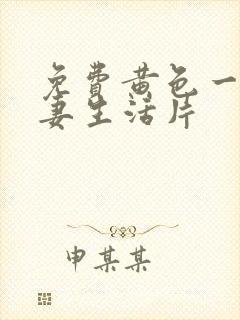 免费黄色一
妻生活片
申某某